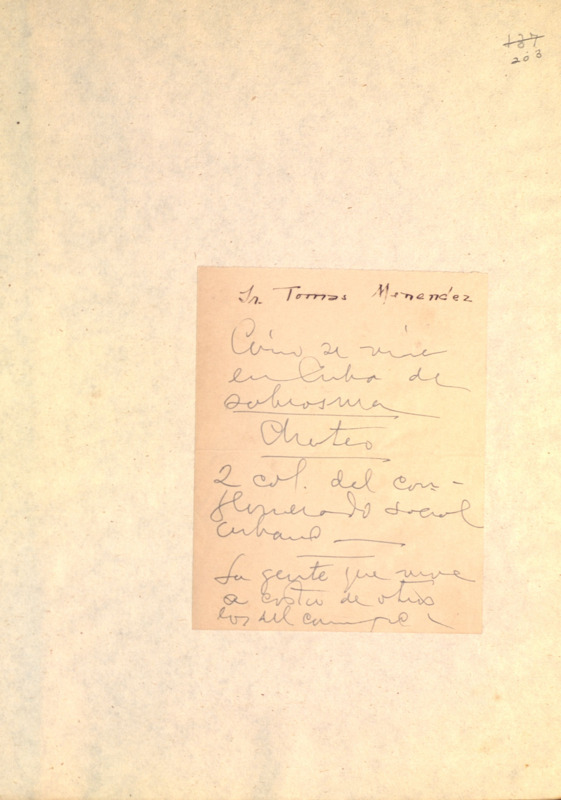 137
203
Sr. Tomas Menendez
Cómo se vive
en Cuba de
sabrosura
Choteo
2 col. del con-
glomerado social
cubano —
La gente que vive
a costa de otros
los del